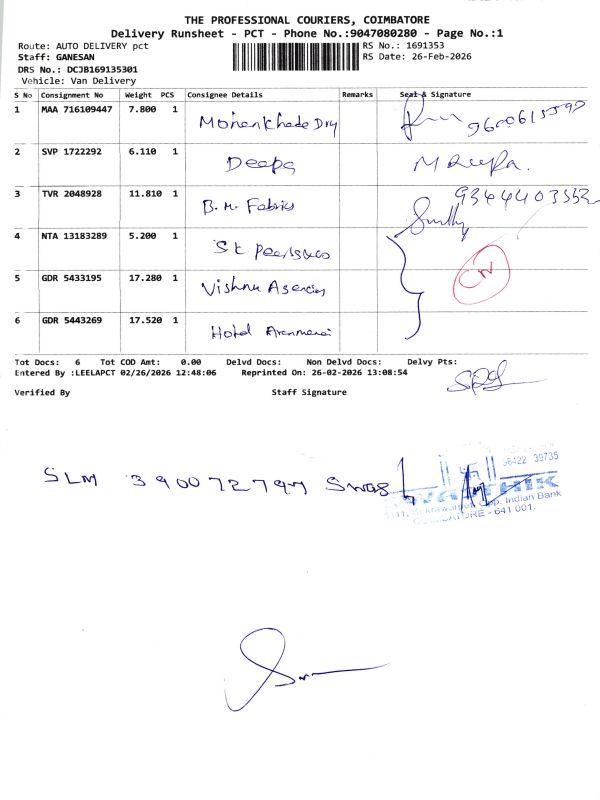 THE PROFESSIONAL COURIERS, COIMBATORE
Delivery Runsheet - PCT - Phone No.:9047080280 - Page No.:1
Route: AUTO DELIVERY pct RS No.: 1691353
Staff: GANESAN RS Date: 26-Feb-2026
DRS No.: DCJB169135301
Vehicle: Van Delivery
S No Consignment No Weight PCS Consignee Details Remarks Seal & Signature
1 MAA 716109447 7.800 1 Mohankhade Dry
2 SVP 1722292 6.110 1 Deepa M Deepa.
3 TVR 2048928 11.810 1 B.M. Fabrics 9344403352
4 NTA 13183289 5.200 1 St
5 GDR 5433195 17.280 1 Vishnu Agencies CN
6 GDR 5443269 17.520 1 Hotel
Tot Docs: 6 Tot COD Amt: 0.00 Delvd Docs: Non Delvd Docs: Delvy Pts:
Entered By :LEELAPCT 02/26/2026 12:48:06 Reprinted On: 26-02-2026 13:08:54
Verified By Staff Signature
98422 39735
SLM
Opp. Indian Bank
COIMBATORE - 641 001.